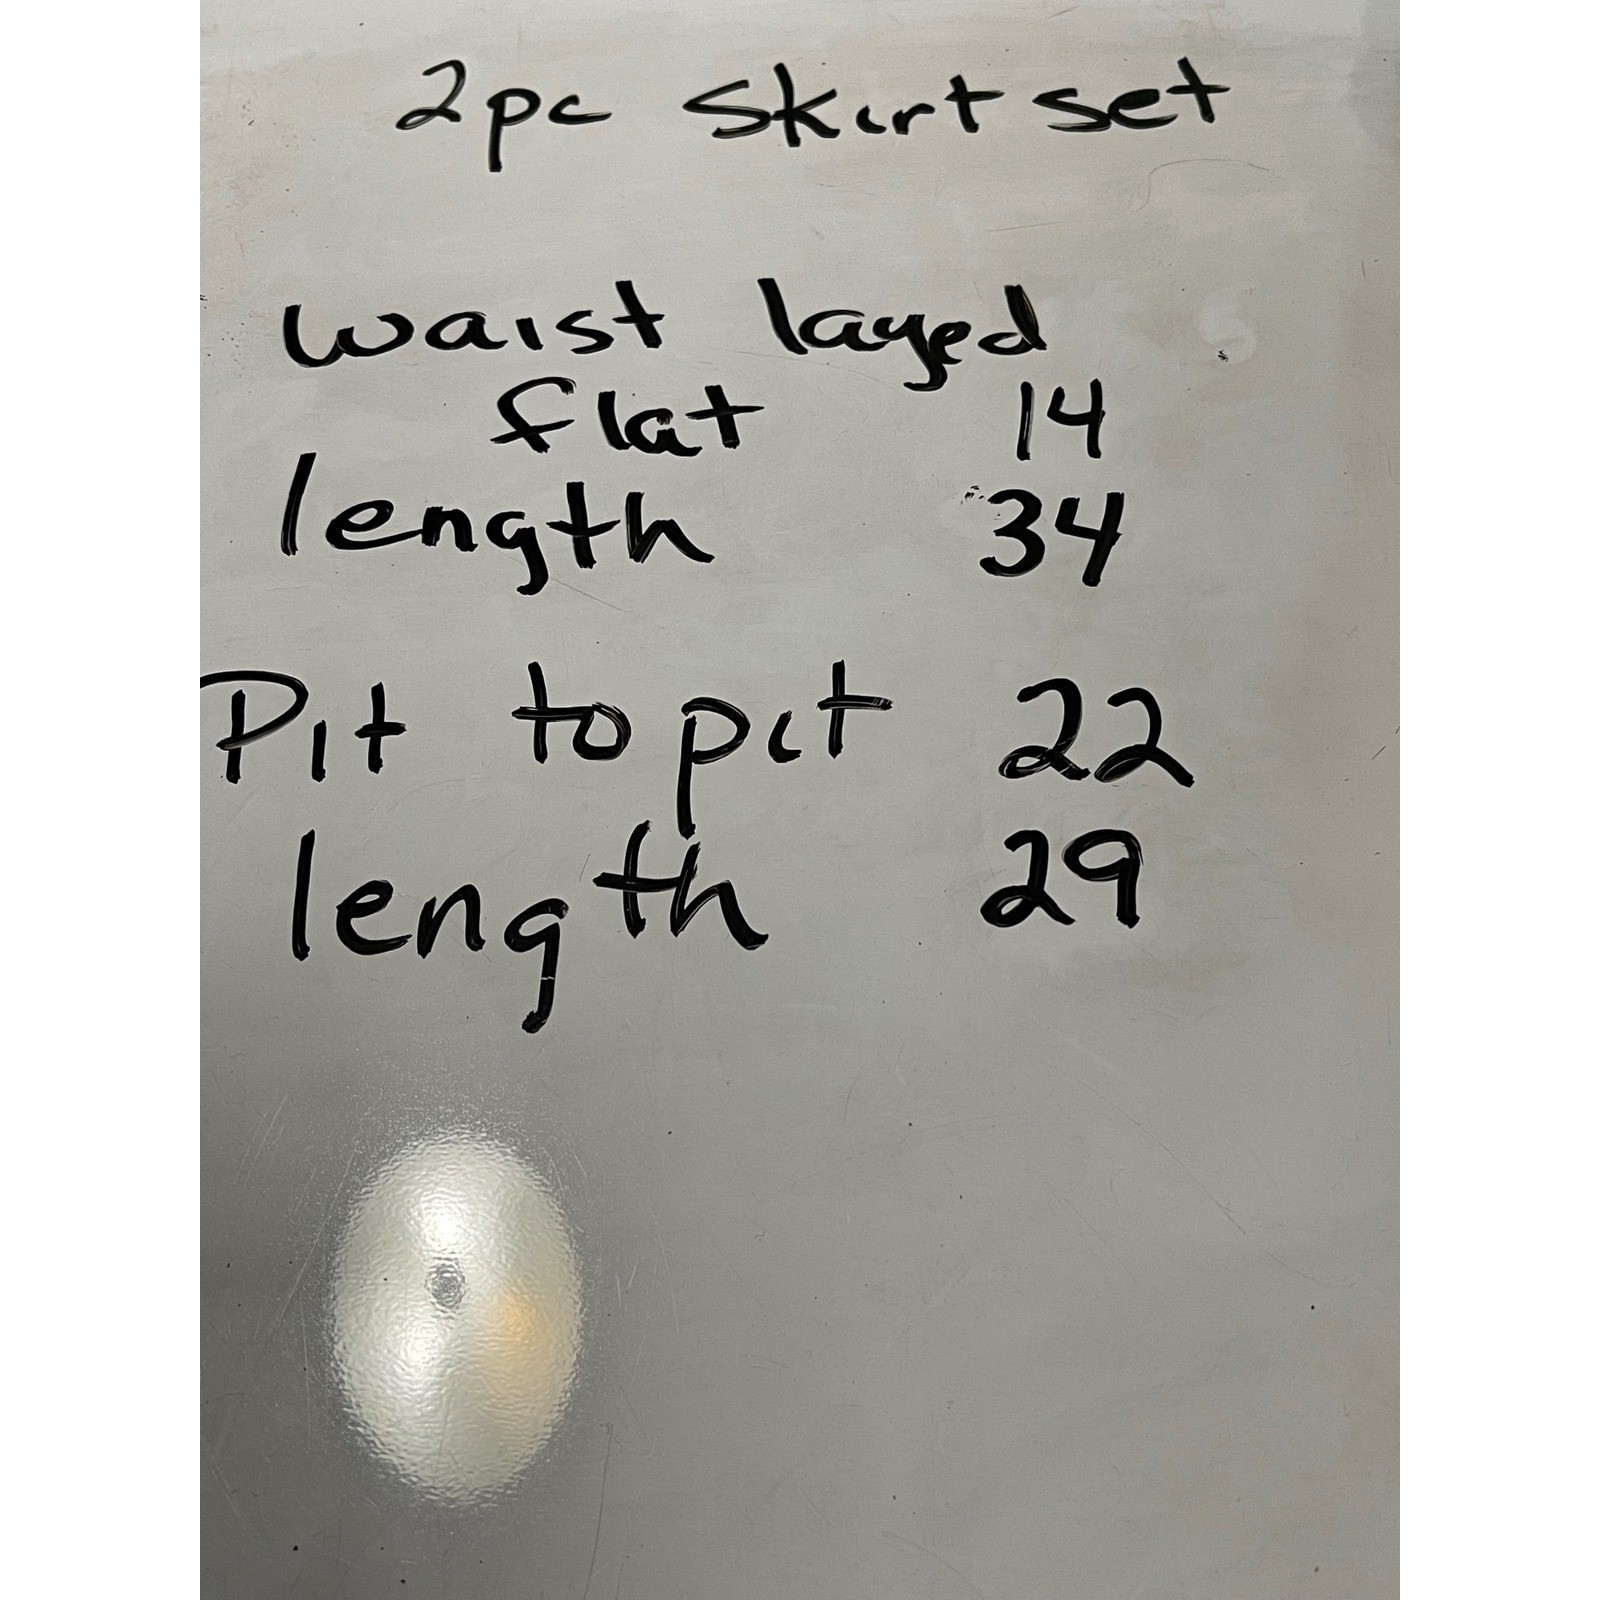 2pc skirt set
waist layed
flat 14
length 34
Pit to pit 22
length 29